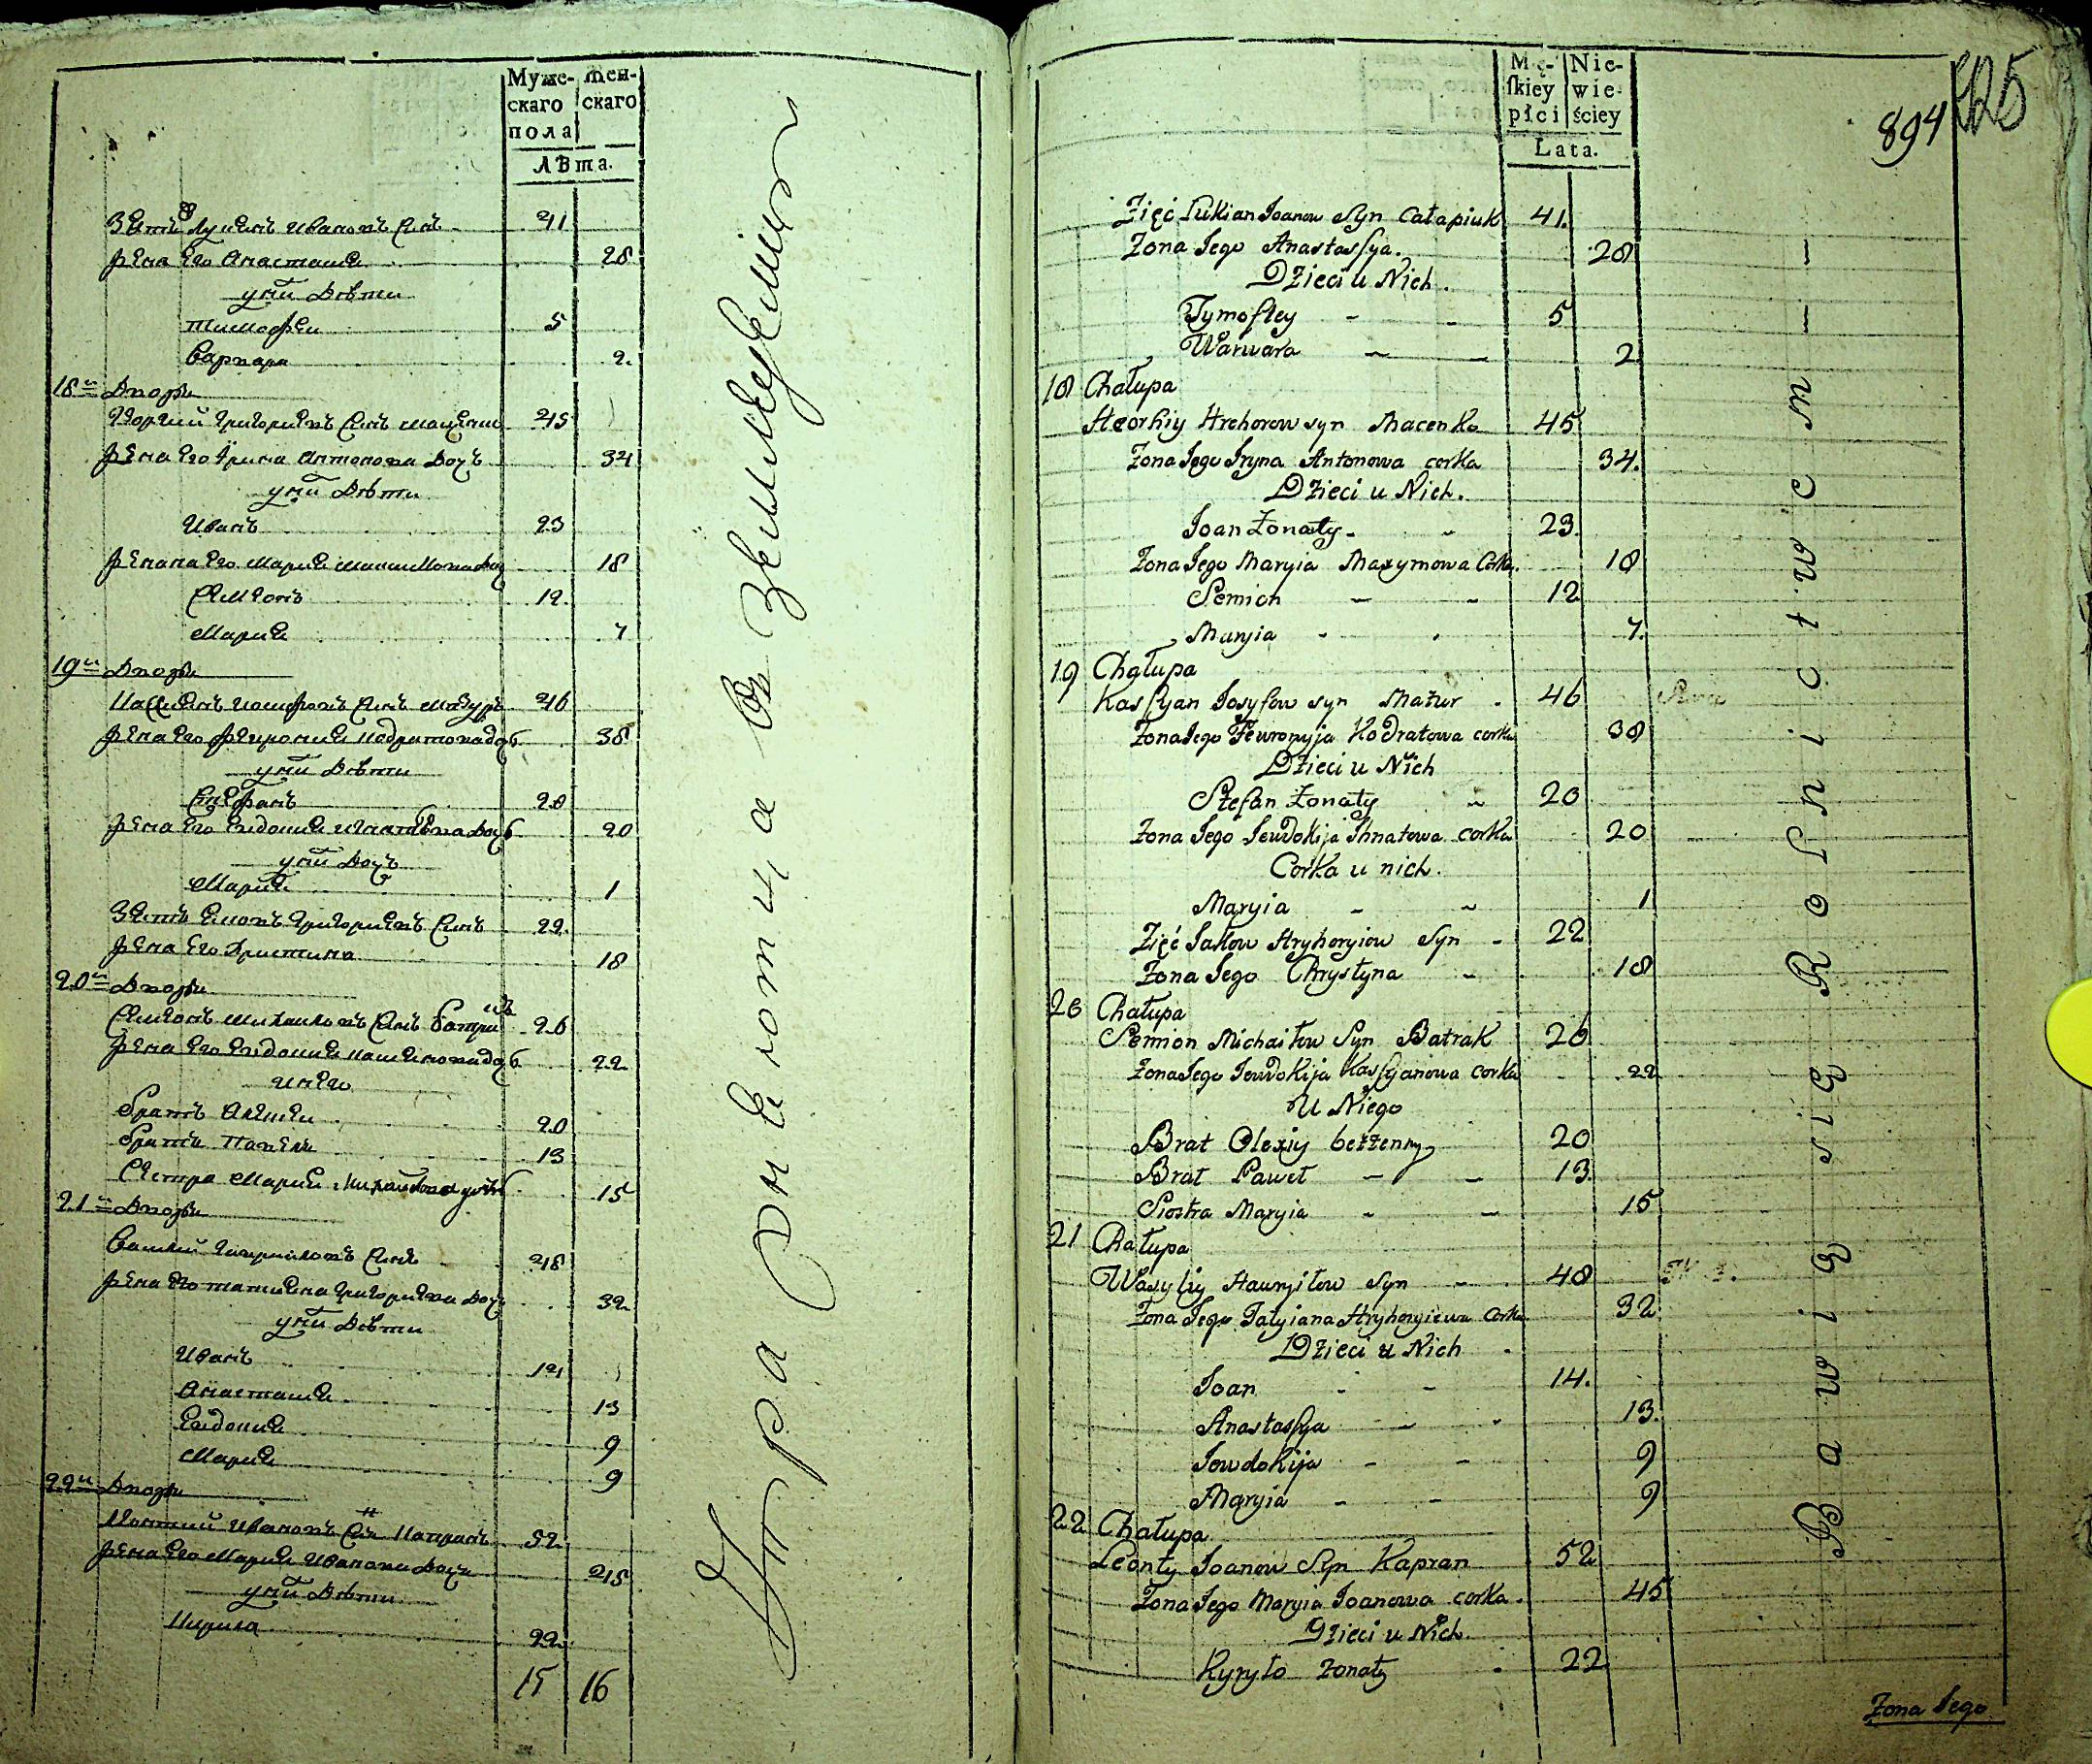 Муже-
скаго
пола
жен-
скаго
лѣта.
Зять Лукянъ Ивановъ Сынъ 41
Жена Его Анастасия 28
у них Дѣти
Тимофей 5
Варвара 2.
18й Дворъ
Георгий Григориевъ Сынъ Маценко 45
Жена Его Ирина Антонова Дочь 34
у них Дѣти
Иванъ 23
Жена Его Мария Максимова Доч 18
Семионъ 12.
Мария 7
19й Дворъ
Касиянъ Иосифовъ Сынъ Мазуръ 46
Жена Его Феврония Кодратова доч 38
у них Дѣти
Стефанъ 20
Жена Его Евдокия Игнатьева Доч 20
у них Дочь
Мария 1
Зять Яковъ Григориевъ Сынъ 22.
Жена Его Христина 18
20й Дворъ
Семионъ Михайловъ Сынъ Батракъ 26
Жена Его Евдокия Касиянова доч 22
У него
Братъ Алексѣй 20
Братъ Павелъ 13
Сестра Мария Михайлова дочь 15
21й Дворъ
Василий Гавриловъ Сынъ 48
Жена Его Татияна Григориева Доч 32
у них Дѣти
Иванъ 14
Анастасия 13
Евдокия 9
Мария 9
22й Дворъ
Леонтий Ивановъ Сын Капранъ 52
Жена Его Мария Иванова Дочь 45
у них Дѣти
Кирила 22
15 16
Упражняются в земледелии
Mę-
ſkiey
płci
Nie-
wie-
ściey
Lata.
894
425
Zięć Lukian Joanow Syn Całapiuk 41.
Zona Jego Anastasſya. 28
Dzieci u Nich.
Tymofſey 5
Warwara 2
18 Chałupa
Heorhiy Hrehorow syn Macenko 45
Zona Jego Jryna Antonowa corka 34.
Dzieci u Nich.
Joan Zonaty 23.
Zona Jego Maryia Maxymowa Corka. 18
Semion 12
Maryia 7.
19 Chałupa
Kasſyan Josyfow syn Mazur 46
Zona Jego Fewronyja Kodratowa corka 38
Dzieci u Nich
Stefan Zonaty 20
Zona Jego Jewdokija Jhnatowa corka 20
Corka u nich.
Maryia 1
Zięć Jakow Hryhoryiow Syn 22
Zona Jego Chrystyna 18
20 Chałupa
Semion Michaiłow Syn Batrak 26
Zona Jego Jewdokija Kasſyanowa corka 22
U Niego
Brat Olexiy bezzenny 20
Brat Paweł 13.
Siostra Maryia 15
21 Chałupa
Wasyliy Hawryiłow Syn 48
Zona Jego Tatyiana Hryhoryiewa Corka 32
Dzieci u Nich
Joan 14.
Anastasſya 13.
Jewdokija 9
Maryia 9
22 Chałupa
Leonty Joanow Syn Kapran 52
Zona Jego Maryia Joanowa corka. 45
Dzieci u Nich.
Kyryło Zonaty 22
Bawią się Rolnictwem
Zona Jego